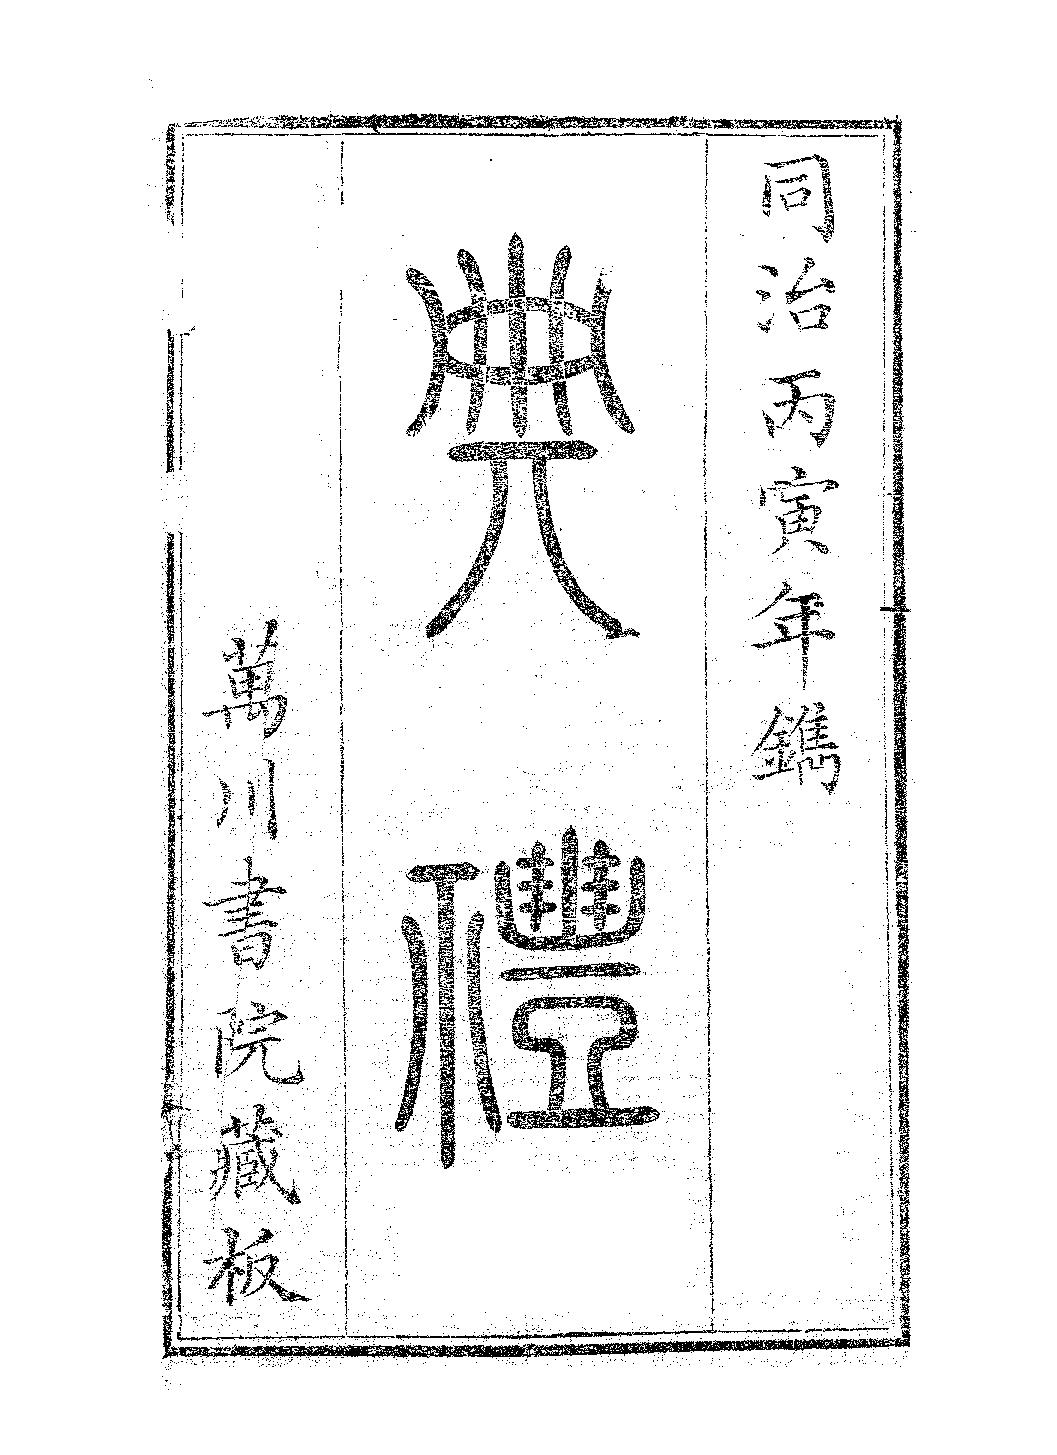 同治丙寅年鐫
典禮
萬川書院藏板